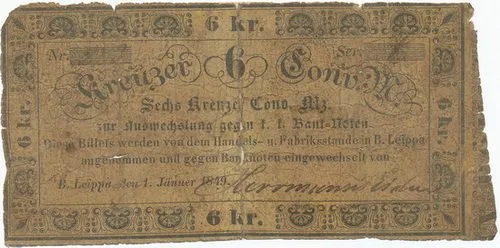 6 kr.
Nr. Ser.
Kreuzer 6 Conv. M.
Sechs Kreuze Conv. Mz.
zur Auswechslung gegen k. k. Bank-Noten.
Diese Billets werden von dem Handels- u. Fabriksstande in B. Leippa
angenommen und gegen Banknoten eingewechselt von
B. Leippa, den 1. Jänner 1849. Herrmann
6 kr.
6 kr.
6 kr.